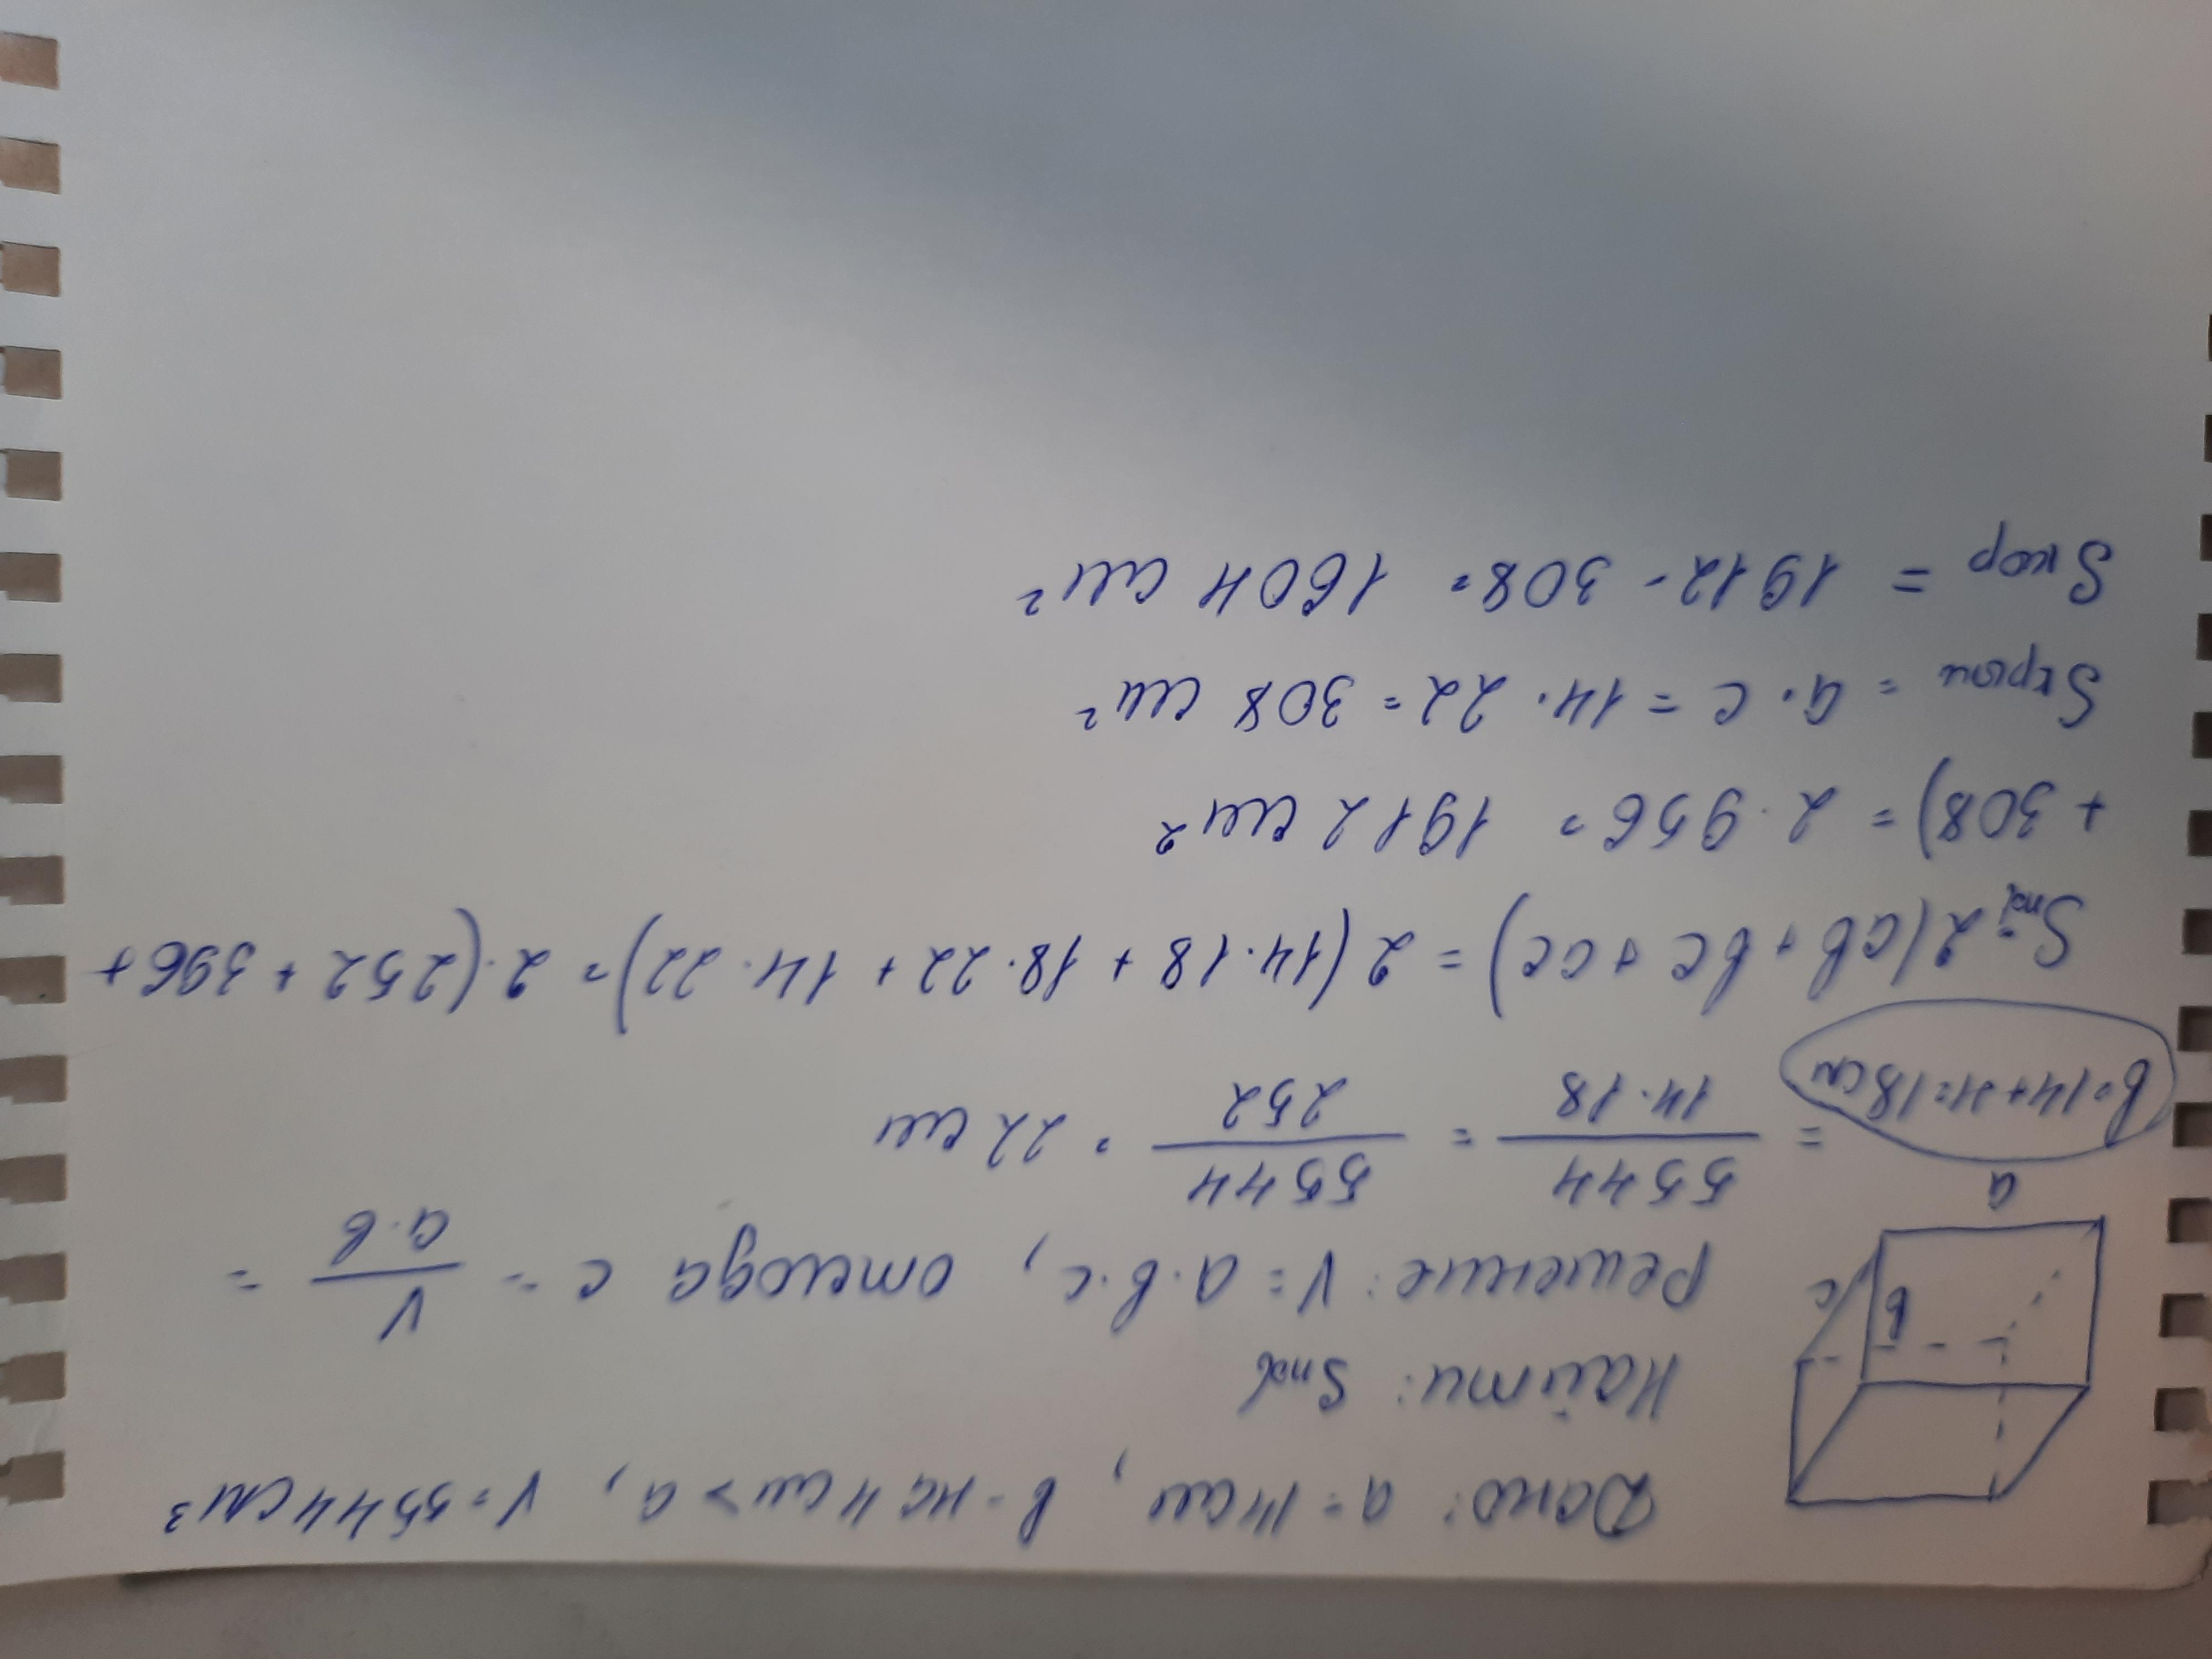 Дано: a = 14 см, b - на 4 см > a, V = 5544 см³
Найти: Sпов
Решение: V = a·b·c, отсюда c = V/a·b =
b c
a
b=14+4=18 см
= 5544/14·18 = 5544/252 = 22 см
Sпов = 2(ab + bc + ac) = 2(14·18 + 18·22 + 14·22) = 2·(252 + 396 +
+ 308) = 2·956 = 1912 см²
Sкрыш = a·c = 14·22 = 308 см²
Sкор = 1912 - 308 = 1604 см²